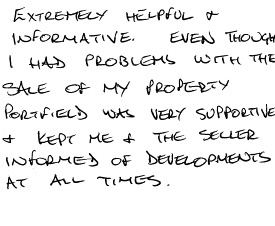 EXTREMELY HELPFUL &
INFORMATIVE. EVEN THOUGH
I HAD PROBLEMS WITH THE
SALE OF MY PROPERTY
PORTFIELD WAS VERY SUPPORTIVE
& KEPT ME & THE SELLER
INFORMED OF DEVELOPMENTS
AT ALL TIMES.